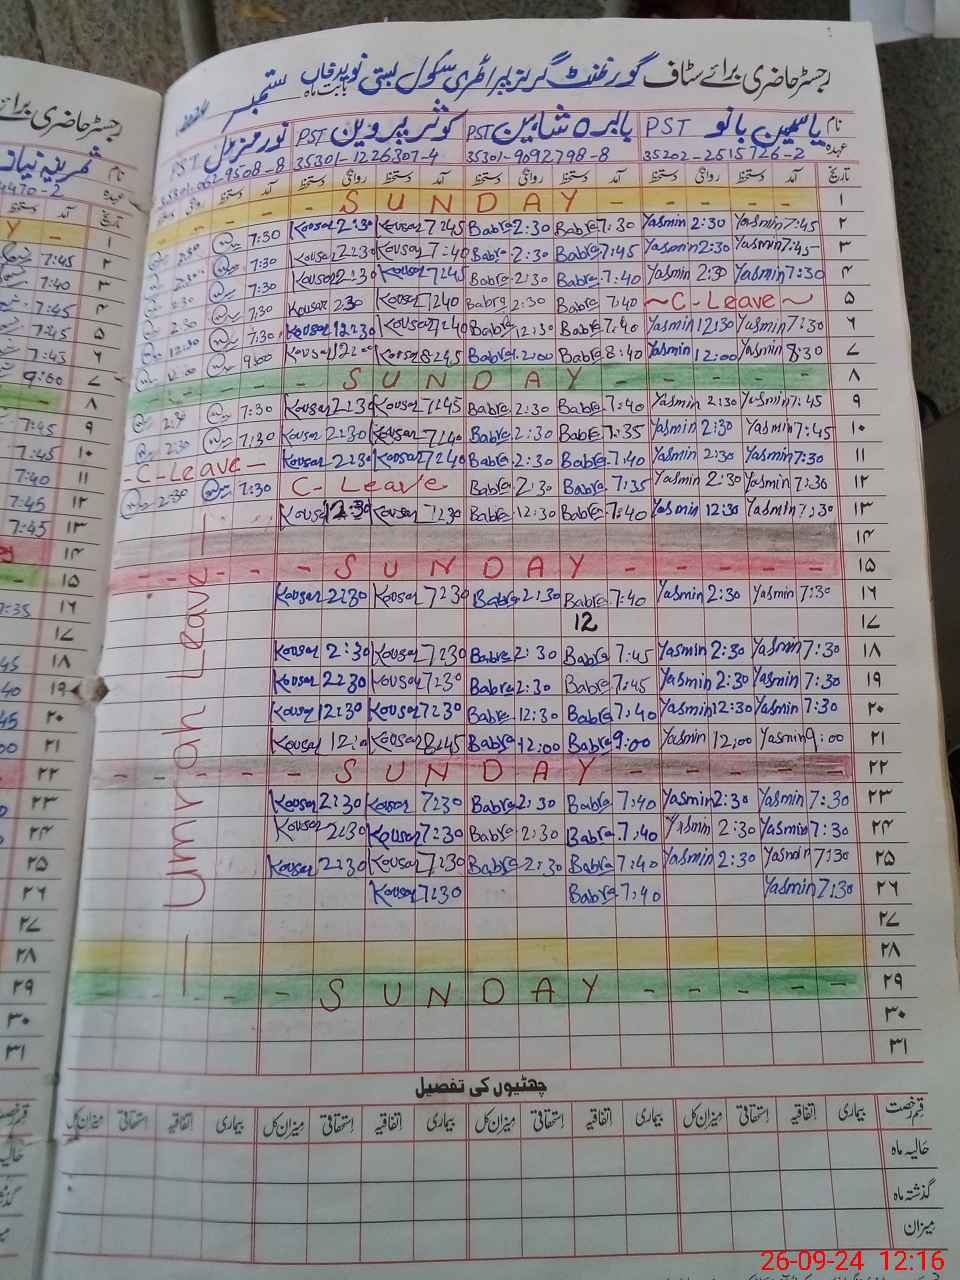 رجسٹر حاضری برائے سٹاف گورنمنٹ گرلز پرائمری سکول بستی نوید خاں بابت ماہ ستمبر 2024
نام یاسمین بانو PST بابرہ شاہین PST کوثر پروین PST نور مزمل PST
عہدہ 35202-2515726-2 35301-9092798-8 35301-1226307-4
تاریخ آمد دستخط روانگی دستخط آمد دستخط روانگی دستخط آمد دستخط روانگی دستخط آمد دستخط
۱ - - S U N D A Y - - - - -
۲ 7:30 Kousar 2:30 Kousar 7:45 Babra 2:30 Babra 7:30 Yasmin 2:30 Yasmin 7:45
۳ 7:30 Kousar 2:30 Kousar 7:40 Babra 2:30 Babra 7:45 Yasmin 2:30 Yasmin 7:45
۴ 2:30 7:30 Kousar 2:30 Kousar 7:45 Babra 2:30 Babra 7:40 Yasmin 2:30 Yasmin 7:30
۵ 2:30 7:30 Kousar 2:30 Kousar 7:40 Babra 2:30 Babra 7:40 ~ C-Leave ~
۶ 12:30 7:30 Kousar 12:30 Kousar 7:40 Babra 12:30 Babra 7:40 Yasmin 12:30 Yasmin 7:30
۷ 9:00 Kousar 12:00 Kousar 8:45 Babra 12:00 Babra 8:40 Yasmin 12:00 Yasmin 8:30
۸ - - - - S U N D A Y - - - - -
۹ 2:30 7:30 Kousar 2:30 Kousar 7:45 Babra 2:30 Babra 7:40 Yasmin 2:30 Yasmin 7:45
۱۰ 2:30 7:30 Kousar 2:30 Kousar 7:40 Babra 2:30 Babra 7:35 Yasmin 2:30 Yasmin 7:45
۱۱ - C-Leave - Kousar 2:30 Kousar 7:40 Babra 2:30 Babra 7:40 Yasmin 2:30 Yasmin 7:30
۱۲ 2:30 7:30 C- Leave Babra 2:30 Babra 7:35 Yasmin 2:30 Yasmin 7:30
۱۳ Kousar 12:30 Kousar 7:30 Babra 12:30 Babra 7:40 Yasmin 12:30 Yasmin 7:30
۱۴
۱۵ - - - - - S U N D A Y - - - - -
۱۶ Kousar 2:30 Kousar 7:30 Babra 2:30 Babra 7:40 Yasmin 2:30 Yasmin 7:30
۱۷ 12
۱۸ Kousar 2:30 Kousar 7:30 Babra 2:30 Babra 7:45 Yasmin 2:30 Yasmin 7:30
۱۹ Kousar 2:30 Kousar 7:30 Babra 2:30 Babra 7:45 Yasmin 2:30 Yasmin 7:30
۲۰ Kousar 12:30 Kousar 7:30 Babra 12:30 Babra 7:40 Yasmin 12:30 Yasmin 7:30
۲۱ Kousar Kousar 8:45 Babra 12:00 Babra 9:00 Yasmin 12:00 Yasmin 9:00
۲۲ - - - - S U N D A Y - - - - -
۲۳ Kousar 2:30 Kousar 7:30 Babra 2:30 Babra 7:40 Yasmin 2:30 Yasmin 7:30
۲۴ Kousar 2:30 Kousar 7:30 Babra 2:30 Babra 7:40 Yasmin 2:30 Yasmin 7:30
۲۵ Kousar 2:30 Kousar 7:30 Babra 2:30 Babra 7:40 Yasmin 2:30 Yasmin 7:30
۲۶ Kousar 7:30 Babra 7:40 Yasmin 7:30
۲۷
۲۸
۲۹ - - - S U N D A Y - - - - -
۳۰
۳۱
— Umrah Leave —
چھٹیوں کی تفصیل
قسم رخصت بیماری اتفاقیہ استحقاقی میزان کل بیماری اتفاقیہ استحقاقی میزان کل بیماری اتفاقیہ استحقاقی میزان کل بیماری اتفاقیہ استحقاقی میزان کل
حالیہ ماہ
گذشتہ ماہ
میزان
رجسٹر حاضری برائے
نام ثمرینہ نیاز
عہدہ 4470-2
تاریخ آمد دستخط
۱
۲ 7:45
۳ 7:40
۴ 7:45
۵ 7:45
۶ 7:45
۷ 9:00
۸
۹ 7:45
۱۰ 7:45
۱۱ 7:40
۱۲ 7:45
۱۳ 7:45
۱۴
۱۵
۱۶ 7:35
۱۷
۱۸
۱۹
۲۰
۲۱
۲۲
۲۳
۲۴
۲۵
۲۶
۲۷
۲۸
۲۹
۳۰
۳۱
26-09-24 12:16